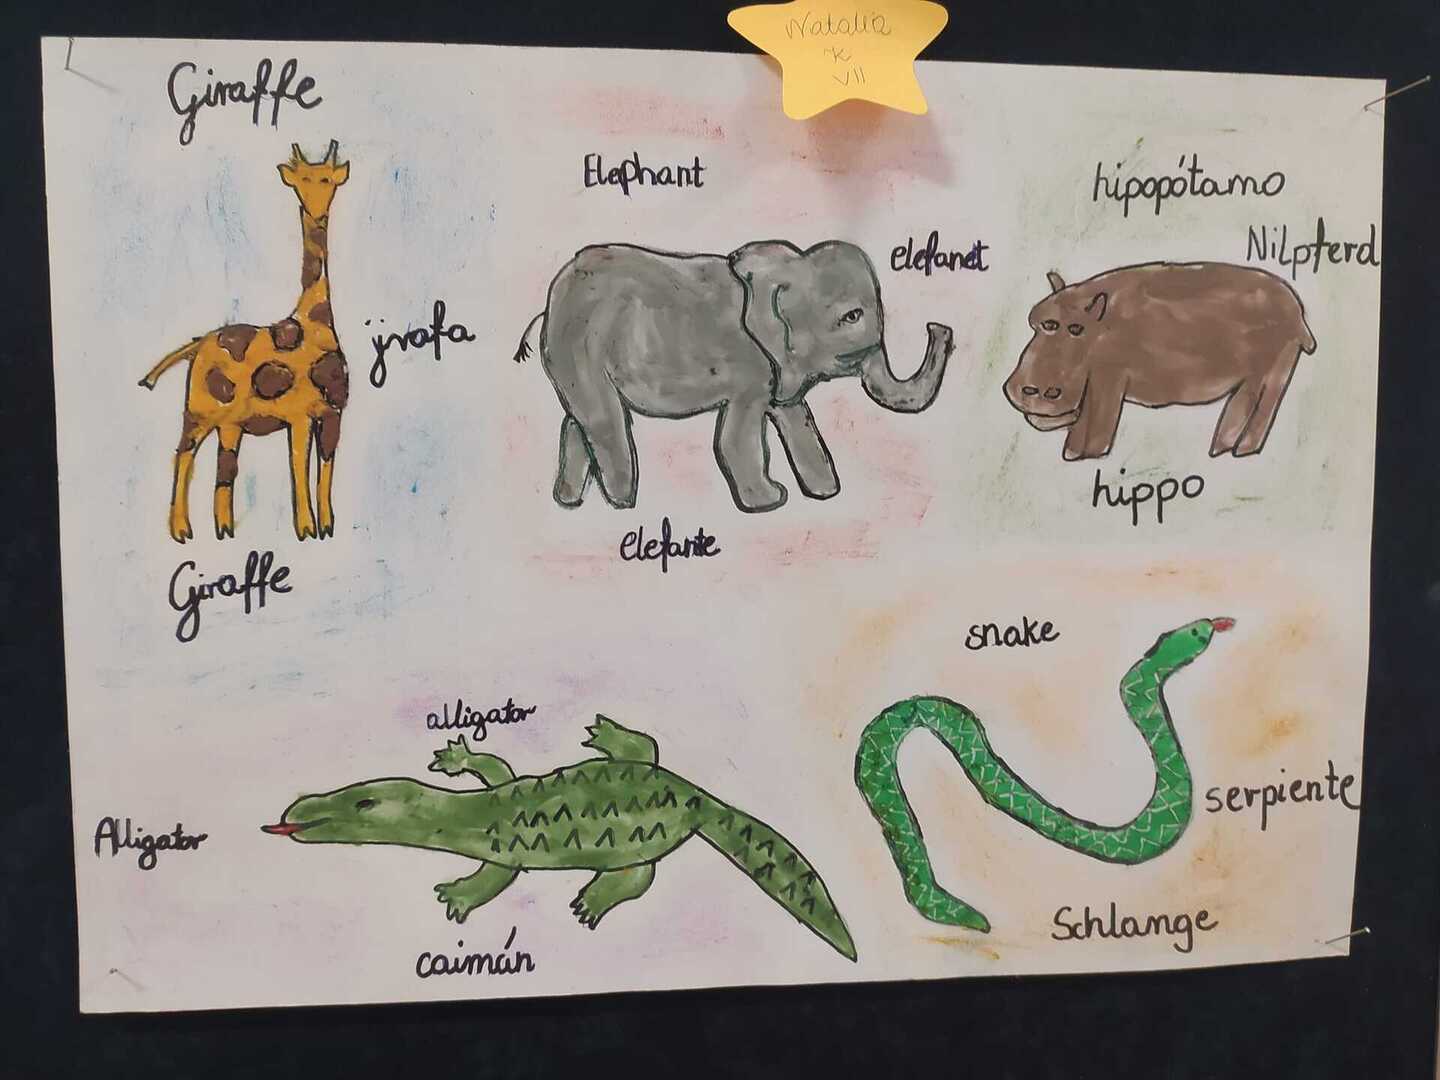 Natalia
K
VII
Giraffe
jirafa
Giraffe
Elephant
elefanet
elefante
hipopótamo
Nilpferd
hippo
alligator
Alligator
caimán
snake
serpiente
Schlange